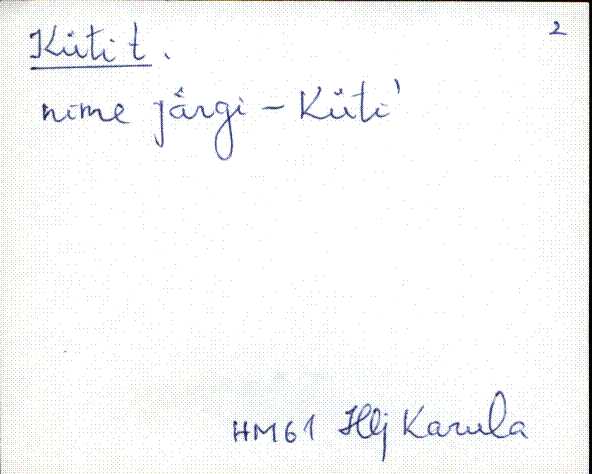 2
Küti t.
nime järgi – Küti'
HM61 Hlj Karula